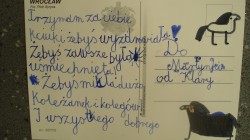 WROCŁAW
Trzymam za ciebie
kciuki żebyś wyzdrowiała
Żebyś zawsze była
uśmiechnięta!
Żebyś miała dużo
Koleżanek i kolegów
I wszystkiego dobrego
Do
od Klary